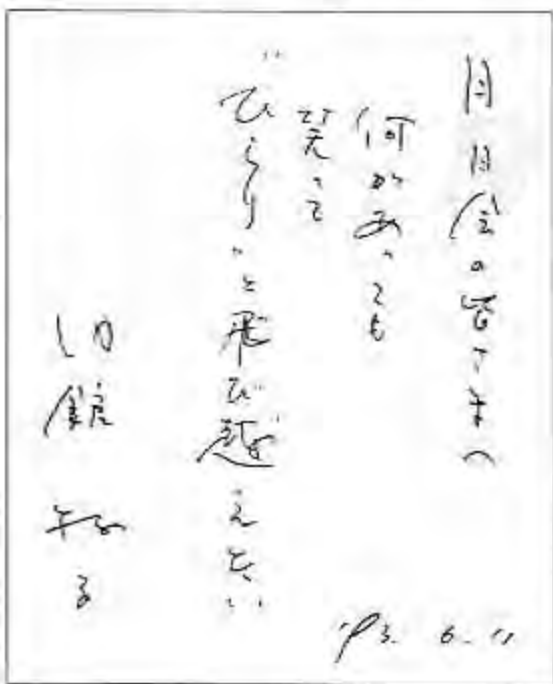 月月会の皆さまへ
何があっても
笑って
"ひらり"と飛び越えたい
内館牧子
'93.6.11